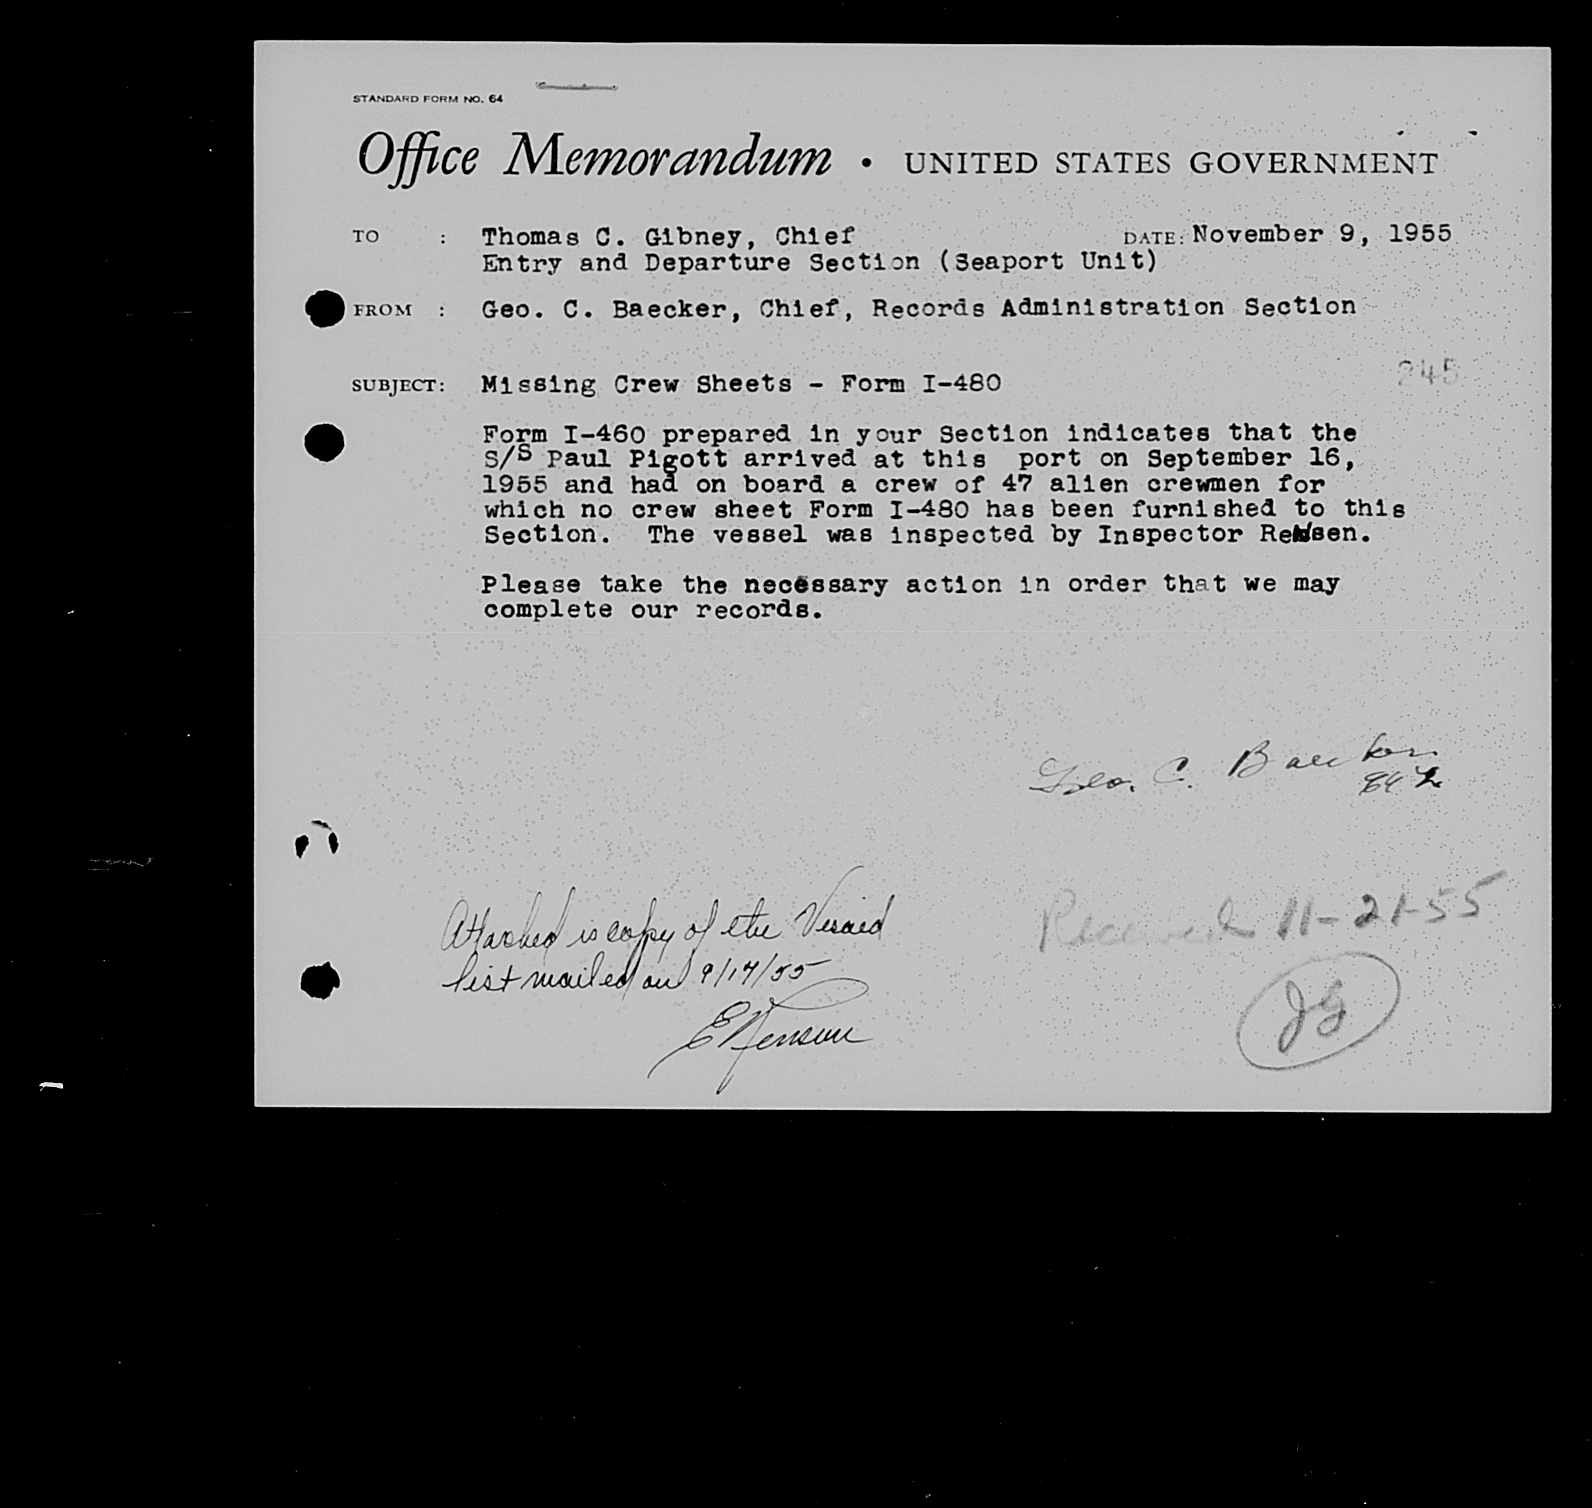 STANDARD FORM NO. 64
Office Memorandum • UNITED STATES GOVERNMENT
TO : Thomas C. Gibney, Chief DATE: November 9, 1955
Entry and Departure Section (Seaport Unit)
FROM : Geo. C. Baecker, Chief, Records Administration Section
245
SUBJECT: Missing Crew Sheets - Form I-480
Form I-460 prepared in your Section indicates that the
S/S Paul Pigott arrived at this port on September 16,
1955 and had on board a crew of 47 alien crewmen for
which no crew sheet Form I-480 has been furnished to this
Section. The vessel was inspected by Inspector Rensen.
Please take the necessary action in order that we may
complete our records.
Geo. C. Baecker
Attached is copy of the Visaed
list mailed on 9/17/55
Received 11-21-55
JG